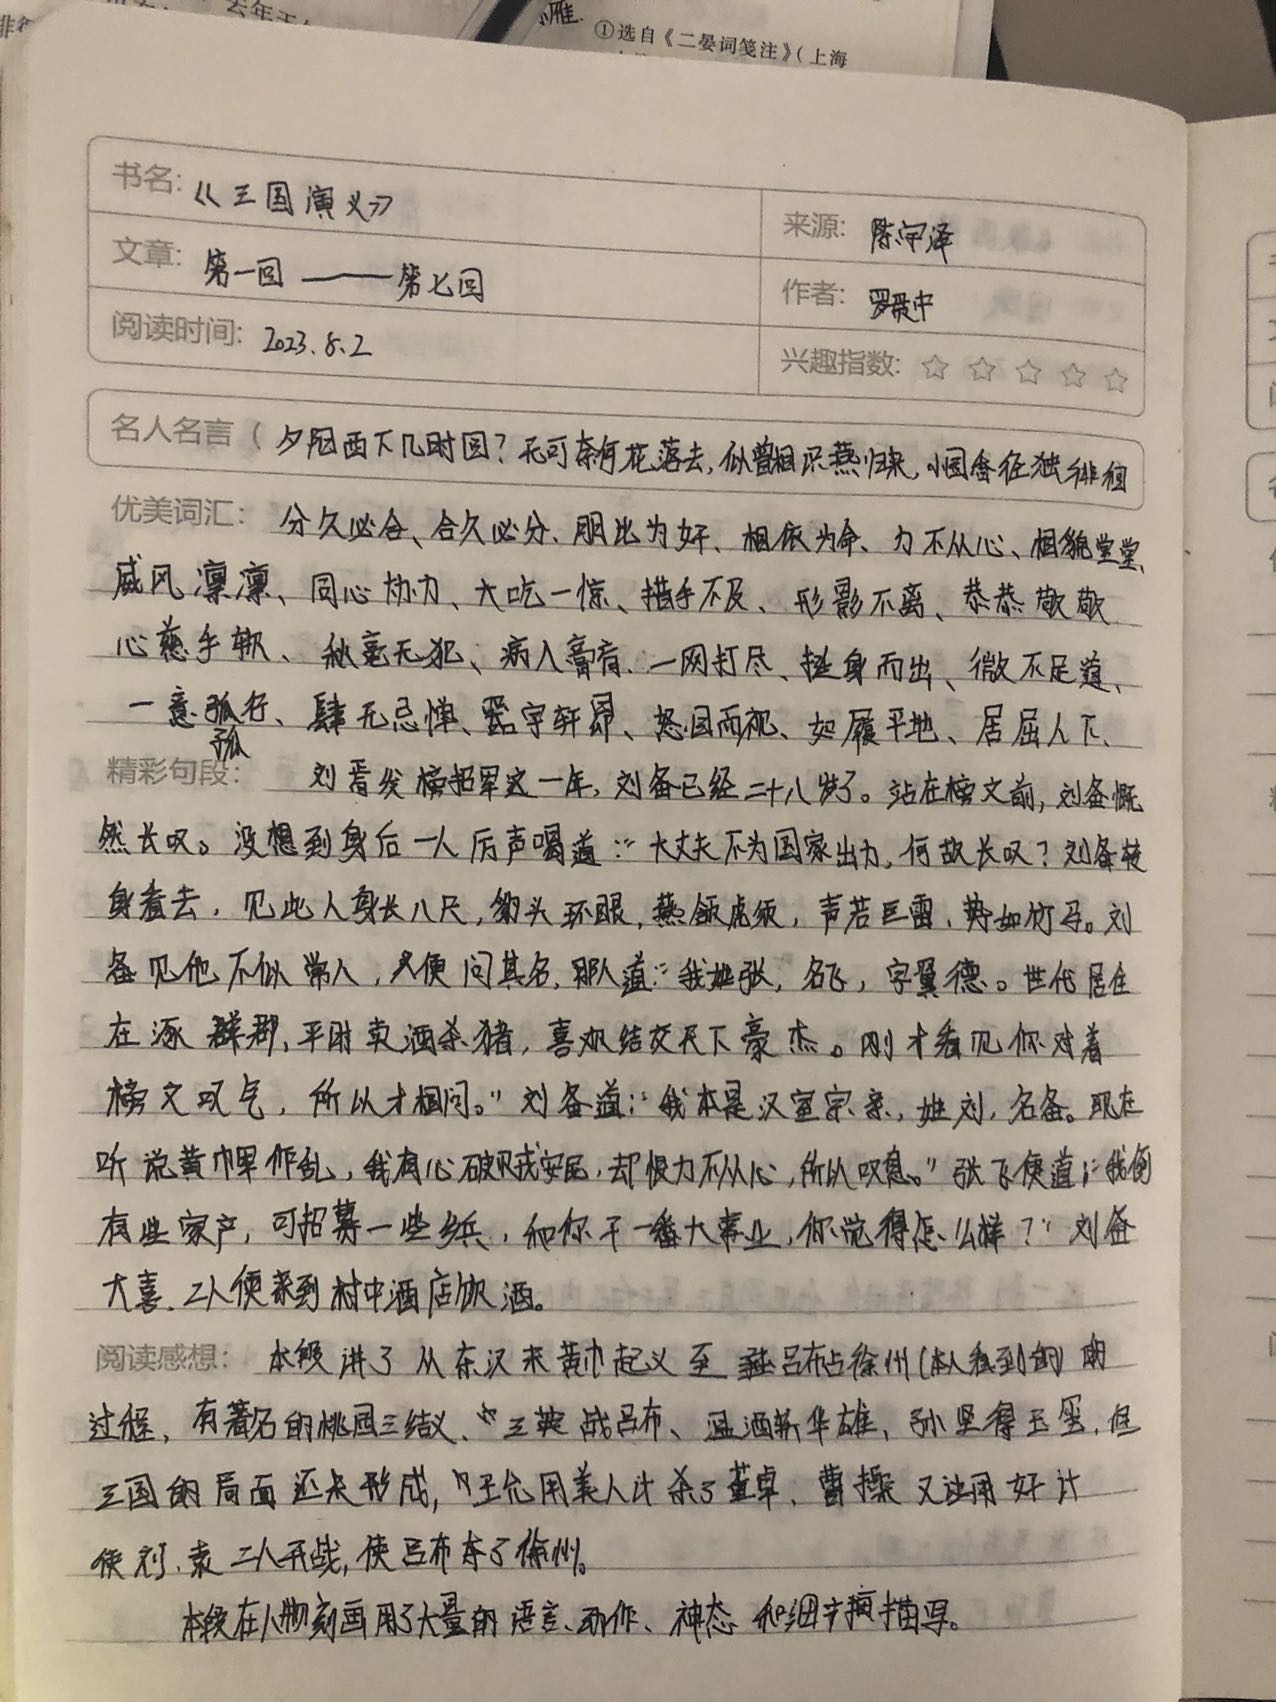 去年天
雁.
①选自《二晏词笺注》(上海
书名: 《三国演义》
来源: 陈宇泽
文章: 第一回——第七回
作者: 罗贯中
阅读时间: 2023.8.2
兴趣指数: ☆ ☆ ☆ ☆ ☆
名人名言 ( 夕阳西下几时回?无可奈何花落去,似曾相识燕归来,小园香径独徘徊
优美词汇: 分久必合、合久必分、朋比为奸、相依为命、力不从心、相貌堂堂、
威风凛凛、同心协力、大吃一惊、措手不及、形影不离、恭恭敬敬
心慈手软、秋毫无犯、病入膏肓、一网打尽、挺身而出、微不足道、
一意孤行、肆无忌惮、器宇轩昂、怒目而视、如履平地、居屈人下、
孤
精彩句段: 刘焉发榜招军这一年,刘备已经二十八岁了。站在榜文前,刘备慨
然长叹。没想到身后一人厉声喝道:“大丈夫不为国家出力,何故长叹?刘备转
身看去,见此人身长八尺,豹头环眼,燕颔虎须,声若巨雷,势如竹马。刘
备见他不似常人,便问其名,那人道:“我姓张,名飞,字翼德。世代居住
在涿郡,平时卖酒杀猪,喜欢结交天下豪杰。刚才看见你对着
榜文叹气,所以才相问。”刘备道:“我本是汉室宗亲,姓刘,名备。现在
听说黄巾军作乱,我有心破贼安民,却恨力不从心,所以叹息。”张飞便道:“我倒
有些家产,可招募一些乡兵,和你干一番大事业,你觉得怎么样?”刘备
大喜.二人便来到村中酒店饮酒。
阅读感想: 本段讲了从东汉末黄巾起义至吕布占徐州(本人看到的)的
过程,有著名的桃园三结义、三英战吕布、温酒斩华雄,孙坚得玉玺,但
三国的局面还未形成,王允用美人计杀了董卓,曹操又设用奸计
使刘、袁二人开战,使吕布夺了徐州。
本段在人物刻画用了大量的语言、动作、神态和细节描写。